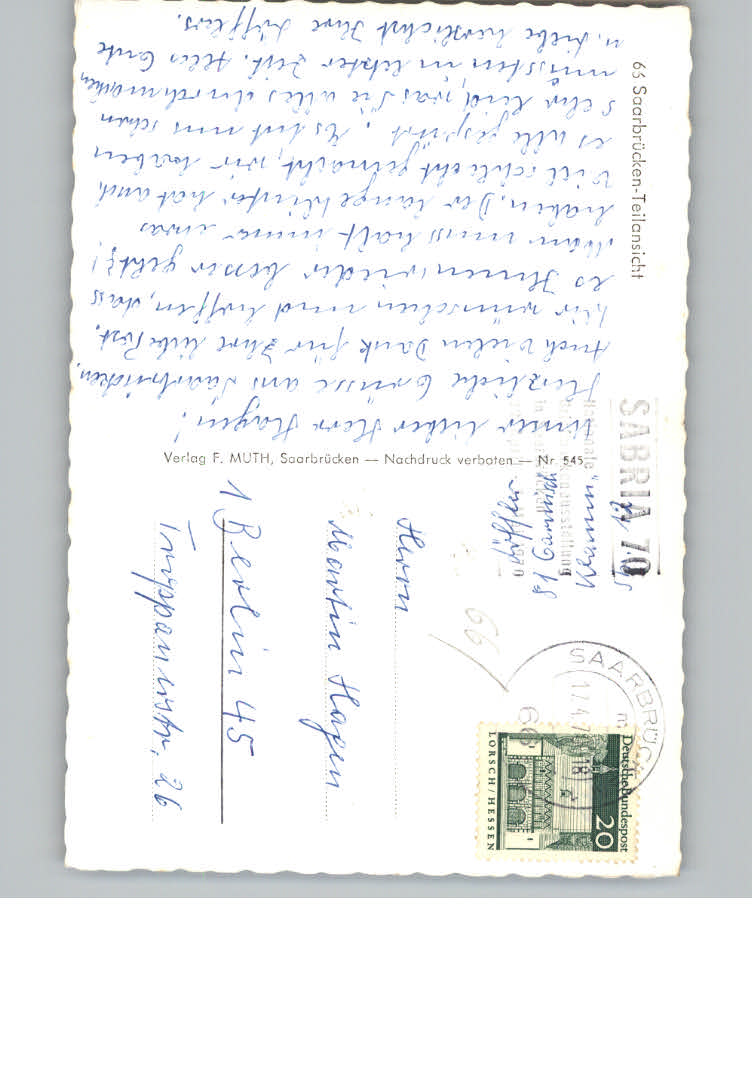 66 Saarbrücken-Teilansicht
Unser lieber Herr Hagen!
Herzliche Grüsse aus Saarbrücken.
Auch vielen Dank für Ihre liebe Post.
Wir wünschen und hoffen, dass
es Ihnen wieder besser geht!
Man muss halt immer etwas
haben. Der lange Winter hat auch
viel schlecht gemacht, wir haben
es alle gespürt. Es tut uns schon
sehr leid, was Sie alles durchmachen
mussten in letzter Zeit. Alles Gute
u. Liebe herzlichst Ihre
Verlag F. MUTH, Saarbrücken — Nachdruck verboten — Nr. 545
SABRIA 70
81 Garmisch
SAARBRÜCK
17.4.7
18
66
Deutsche Bundespost
20
LORSCH/HESSEN
66
Herrn
Martin Hagen
1 Berlin 45
26